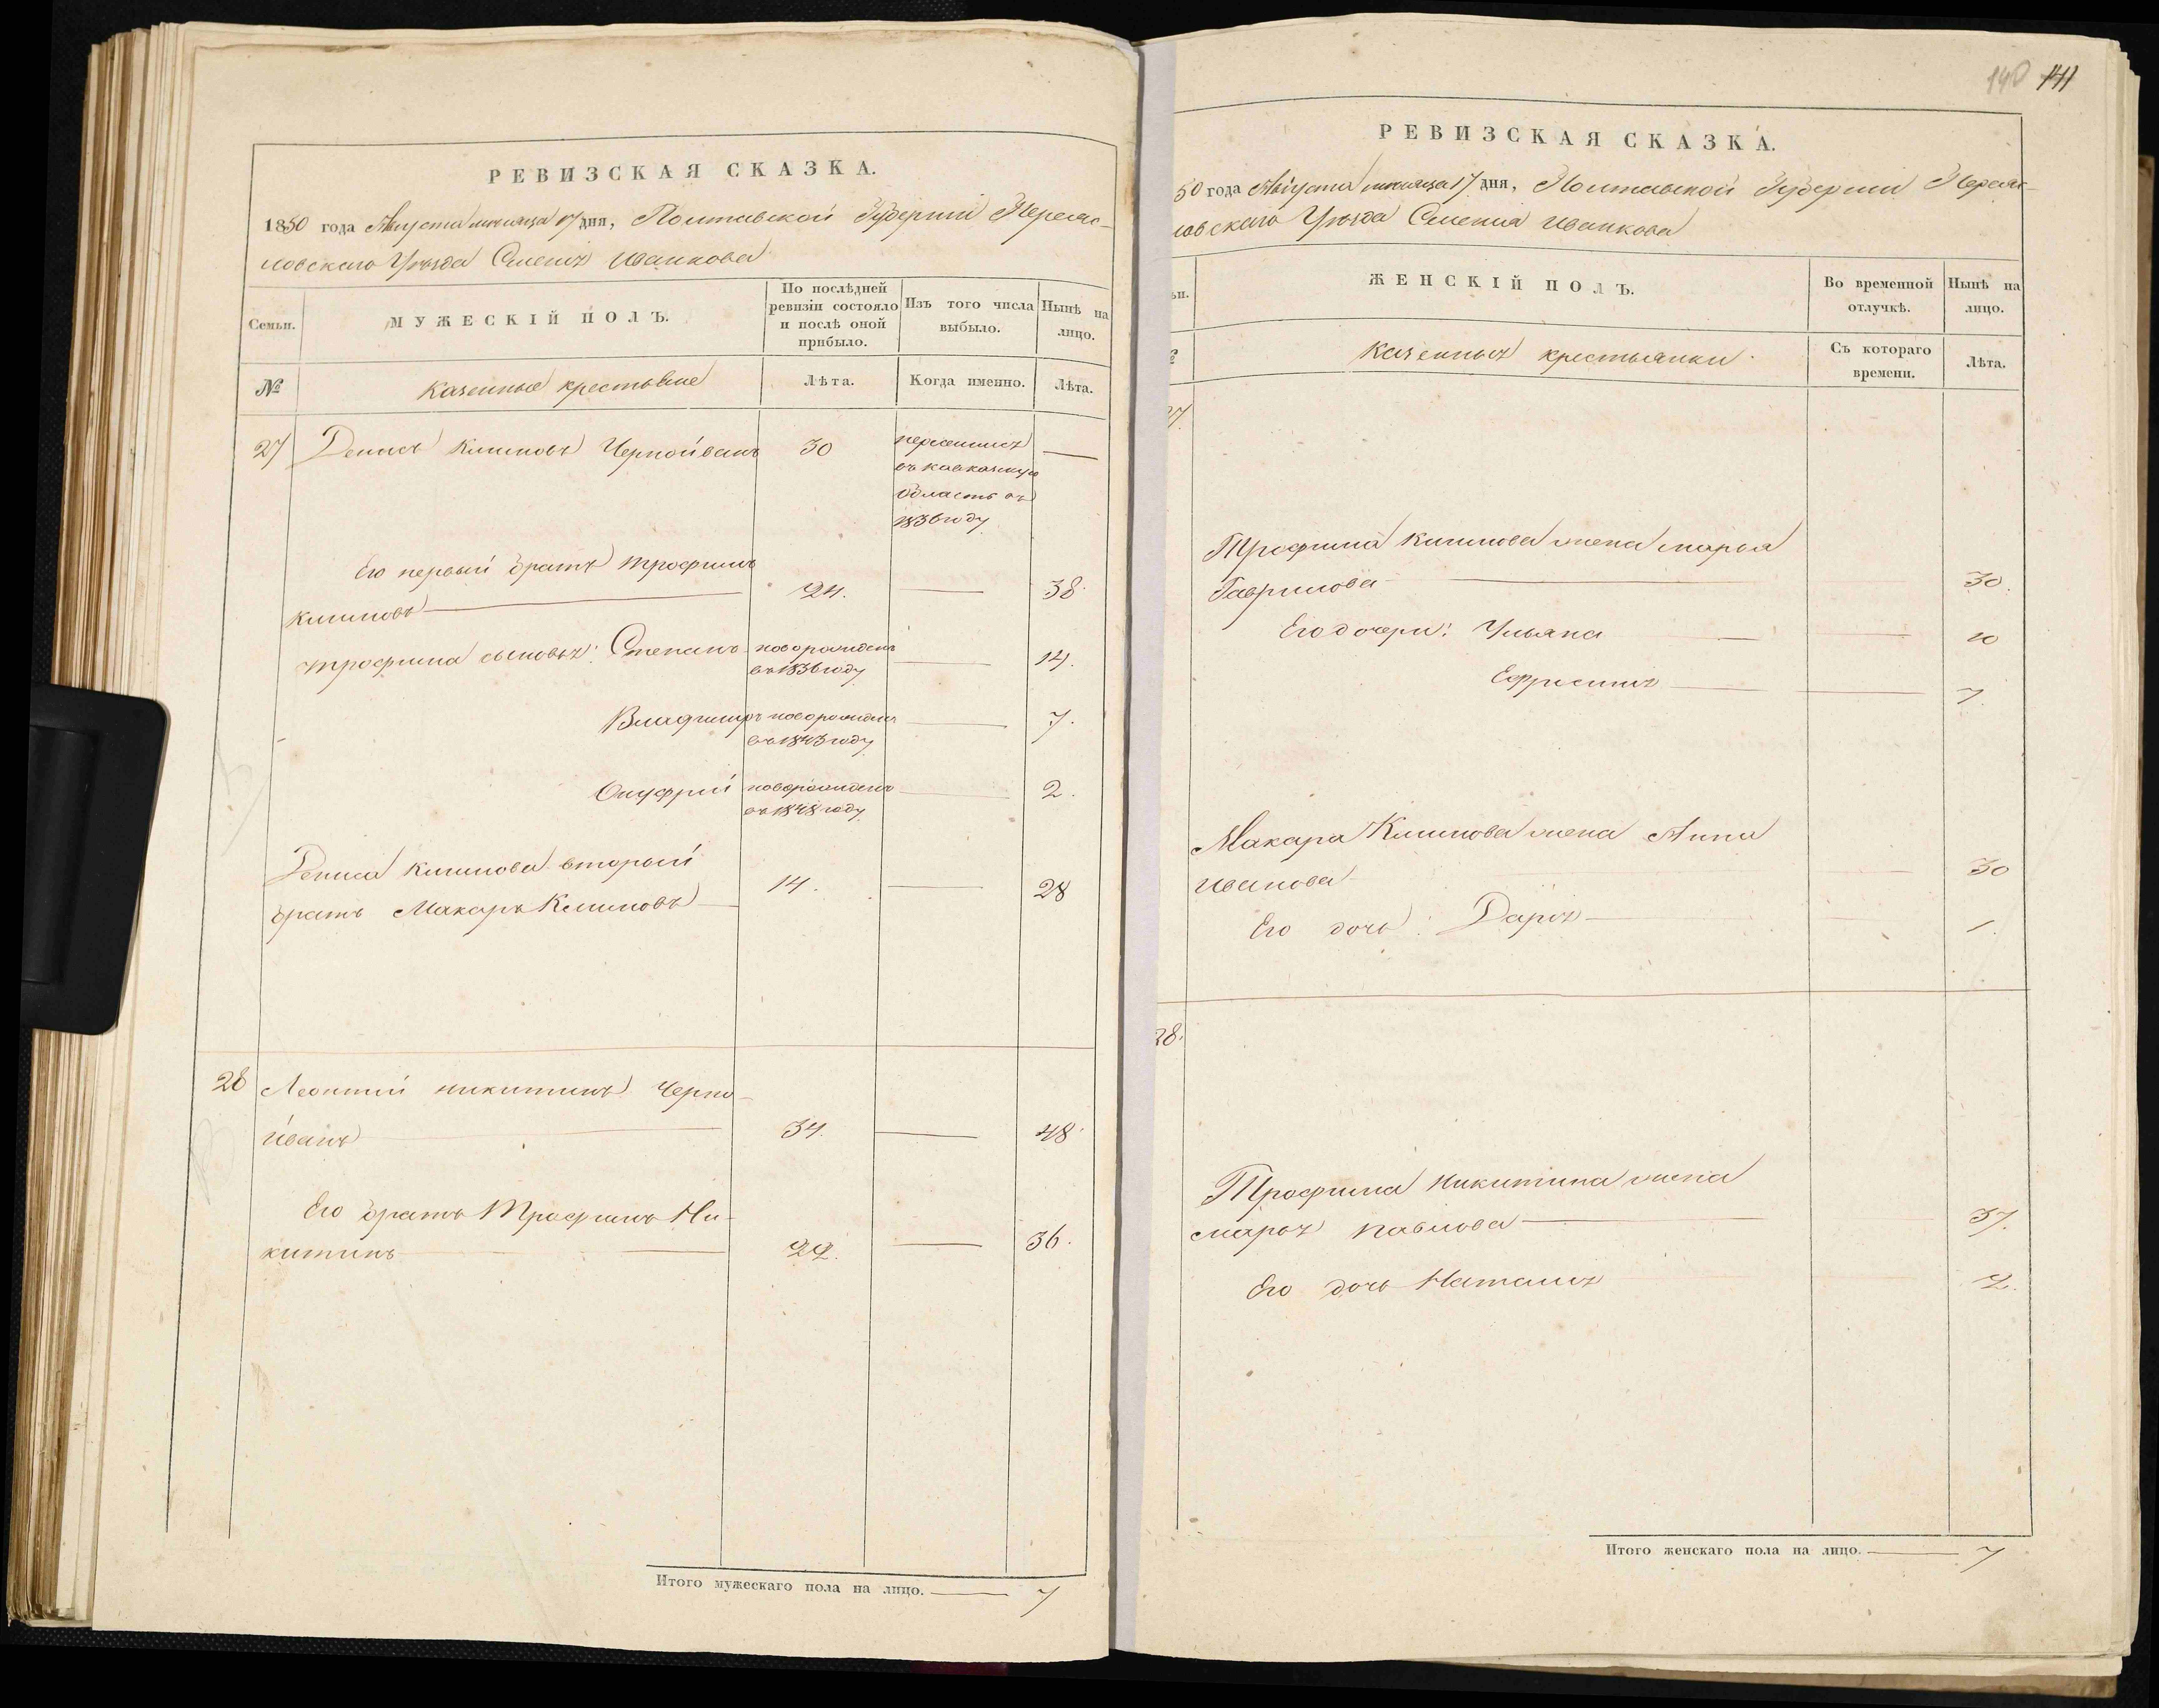 140 141
РЕВИЗСКАЯ СКАЗКА.
1850 года Августа месяца 17 дня, Полтавской Губерніи Переяс-
ловскаго Уезда Селенія Иванкова
Семьи.
МУЖЕСКІЙ ПОЛЪ.
По послѣдней
ревизіи состояло
и послѣ оной
прибыло.
Изъ того числа
выбыло.
Нынѣ на
лицо.
№
Казенные крестьяне
Лѣта.
Когда именно.
Лѣта.
27 Денисъ Климовъ Чернойванъ 30
переселился
въ кавказкую
область въ
1836 году
—
Его первый братъ Трофимъ
Климовъ — 24. — 38.
Трофима сыновья: Степанъ новорожденъ
въ 1836 году — 14.
Владимиръ новорожденъ
въ 1843 году — 7.
Онуфрій новорожденъ
въ 1848 году — 2.
Дениса Климова вторый
братъ Макаръ Климовъ — 14. — 28
28 Леонтій Никитинъ Черно-
иванъ — 34. — 48.
Его братъ Трофимъ Ни-
китинъ — 22. — 36.
Итого мужескаго пола на лицо. — 7
РЕВИЗСКАЯ СКАЗКА.
50 года Августа месяца 17 дня, Полтавской Губерніи Переяс-
ловскаго Уезда Селенія Иванкова
ьи.
ЖЕНСКІЙ ПОЛЪ.
Во временной
отлучкѣ.
Нынѣ на
лицо.
Казенныя крестьянки.
Съ котораго
времени.
Лѣта.
27.
Трофима Климова жена Марья
Гаврилова — 30.
Его дочери: Ульяна — — 10
Ефросинія — — 7.
Макара Климова жена Анна
Иванова — 30
Его дочь: Дарія — — 1.
28.
Трофима Никитина жена
Марія Павлова — 37.
Его дочь Наталія 2.
Итого женскаго пола на лицо. — 7